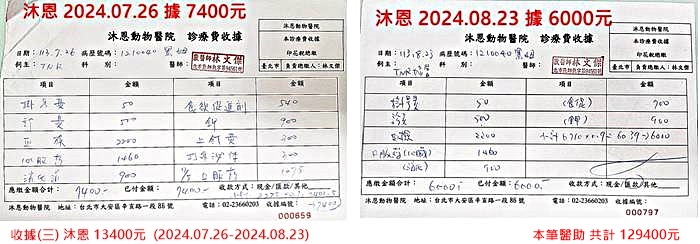 沐恩 2024.07.26 據 7400元
沐恩動物醫院 診療費收據
沐恩動物醫院
本診療費收據
印花稅總繳
日期：113.7.26 病歷號碼：1210040 黑妞
飼主：TNR 科別： 醫師：
獸醫師林文傑
臺北市 負責獸醫：林文傑
項目 金額 項目 金額
掛號費 50 食慾促進劑 540
診費 500 鉀 900
血檢 2200 上針費 300
口服藥 1460 300
900 1075
應繳金額合計：7400- 已付金額：7400- 收款方式：現金/匯款/其他
沐恩動物醫院 地址：台北市大安區辛亥路一段86號 電話：02-23660203 收費員：
000659
沐恩 2024.08.23 據 6000元
沐恩動物醫院 診療費收據
沐恩動物醫院
本診療費收據
印花稅總繳
日期：113.8.23 病歷號碼：1210040 黑妞
飼主：TNR 科別： 醫師：
獸醫師林文傑
臺北市 負責獸醫：林文傑
項目 金額 項目 金額
掛號費 50 900
診費 500 (鉀) 900
血檢 2200
口服藥 1460
900
應繳金額合計：6000 已付金額：6000- 收款方式：現金/匯款/其他
沐恩動物醫院 地址：台北市大安區辛亥路一段86號 電話：02-23660203 收費員：
000797
收據(三) 沐恩 13400元 (2024.07.26-2024.08.23)
本筆醫助 共計 129400元